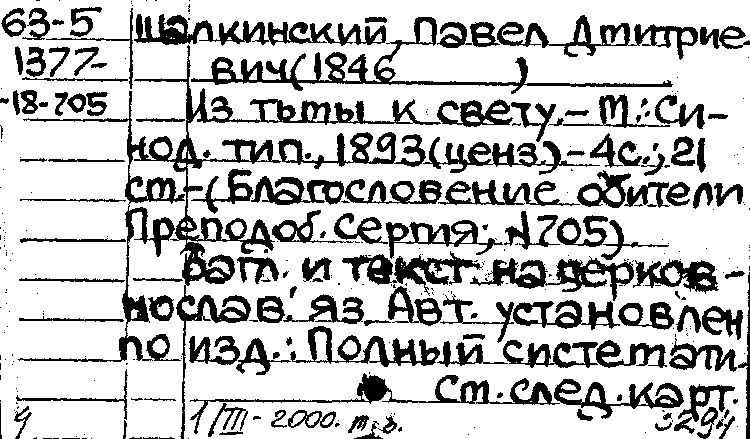 63-5 Шалкинский, Павел Дмитрие-
1377- вич(1846 )
-18-705 Из тьмы к свету.- М.: Си-
нод. тип., 1893(ценз).-4с.; 21
см.-(Благословение обители
Преподоб. Сергия; №705).
Загл. и текст. на церков-
нослав. яз. Авт. установлен
по изд.: Полный системати-
См. след. карт.
1/III-2000. т.
3294